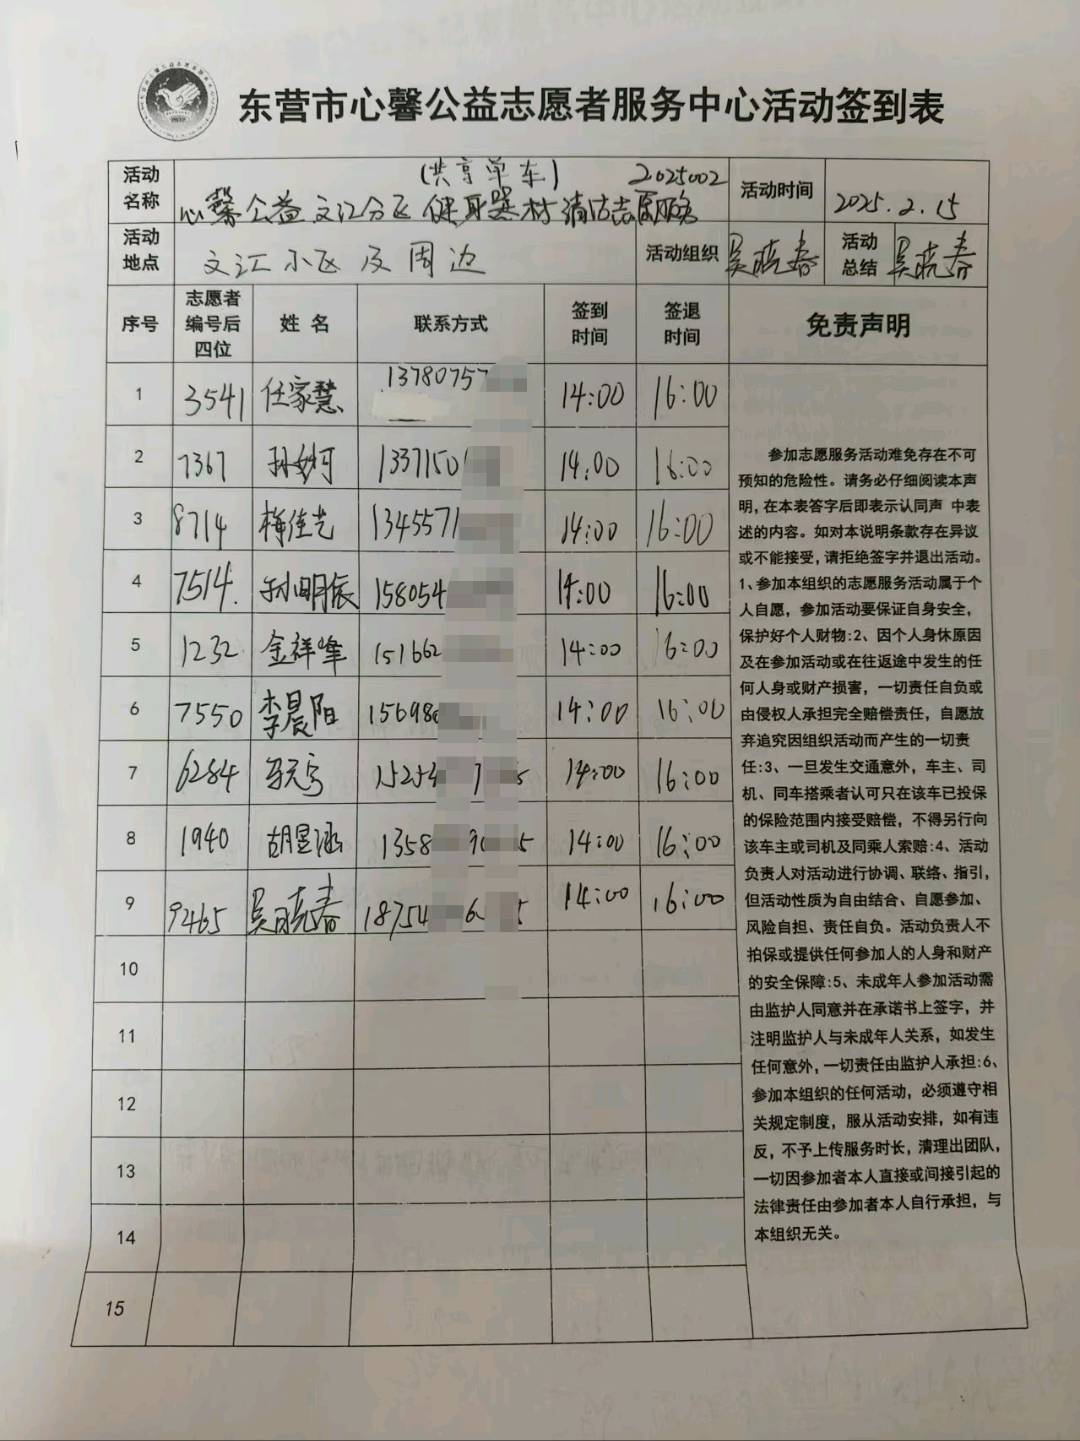 东营市心馨公益志愿者服务中心活动签到表
活动名称 (共享单车) 2025002
心馨公益文汇分区健身器材清洁志愿服务
活动时间 2025.2.15
活动地点 文汇小区及周边 活动组织 吴晓春 活动总结 吴晓春
序号 志愿者编号后四位 姓名 联系方式 签到时间 签退时间 免责声明
1 3541 任家慧 13780757 14:00 16:00
2 7367 孙妙可 1337150 14:00 16:00
3 8714 梅佳艺 1345571 14:00 16:00
4 7514. 孙明辰 158054 14:00 16:00
5 1232 金祥峰 151662 14:00 16:00
6 7550 李晨阳 15698 14:00 16:00
7 6284 15254 7 5 14:00 16:00
8 1940 胡昱涵 1358 5 14:00 16:00
9 9465 吴晓春 18754 6 5 14:00 16:00
10
11
12
13
14
15
参加志愿服务活动难免存在不可
预知的危险性。请务必仔细阅读本声
明,在本表答字后即表示认同声 中表
述的内容。如对本说明条款存在异议
或不能接受,请拒绝签字并退出活动。
1、参加本组织的志愿服务活动属于个
人自愿，参加活动要保证自身安全，
保护好个人财物:2、因个人身休原因
及在参加活动或在往返途中发生的任
何人身或财产损害，一切责任自负或
由侵权人承担完全赔偿责任，自愿放
弃追究因组织活动而产生的一切责
任:3、一旦发生交通意外，车主、司
机、同车搭乘者认可只在该车已投保
的保险范围内接受赔偿，不得另行向
该车主或司机及同乘人索赔:4、活动
负责人对活动进行协调、联络、指引，
但活动性质为自由结合、自愿参加、
风险自担、责任自负。活动负责人不
拍保或提供任何参加人的人身和财产
的安全保障:5、未成年人参加活动需
由监护人同意并在承诺书上签字，并
注明监护人与未成年人关系，如发生
任何意外,一切责任由监护人承担:6、
参加本组织的任何活动，必须遵守相
关规定制度，服从活动安排，如有违
反，不予上传服务时长，清理出团队，
一切因参加者本人直接或间接引起的
法律责任由参加者本人自行承担，与
本组织无关。